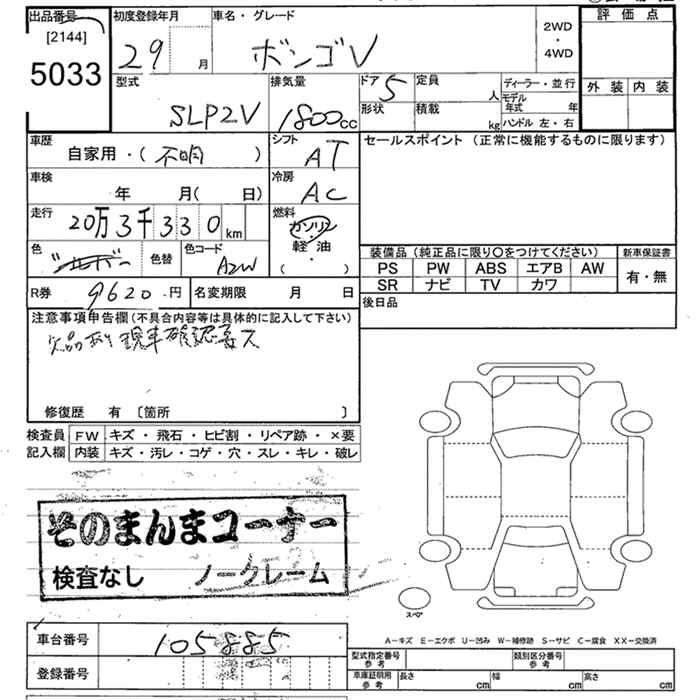 出品番号
[2144]
5033
初度登録年月
29
月
車名・グレード
ボンゴV
2WD
・
4WD
評価点
外装 内装
型式
SLP2V
排気量
1800cc
ドア 5
形状
定員
人
積載
kg
ディーラー・並行
モデル年式 年
ハンドル 左・右
車歴
自家用・(不明)
シフト
AT
セールスポイント(正常に機能するものに限ります)
車検
年 月( 日)
冷房
AC
走行
20万3千330km
燃料
ガソリン
・
軽油
( )
色
シルバー
色替
色コード
A2W
装備品(純正品に限り〇をつけてください)
新車保証書
PS PW ABS エアB AW
SR ナビ TV カワ
有・無
R券
9620円
名変期限 月 日
後日品
注意事項申告欄(不具合内容等は具体的に記入して下さい)
欠品あり現車確認要ス
修復歴 有 〔箇所 〕
検査員記入欄
FW キズ・飛石・ヒビ割・リペア跡・×要
内装 キズ・汚レ・コゲ・穴・スレ・キレ・破レ
そのまんまコーナー
検査なし ノークレーム
スペア
車台番号
105885
登録番号
A－キズ E－エクボ U－凹み W－補修跡 S－サビ C－腐食 XX－交換済
型式指定番号
参考
類別区分番号
参考
車庫証明用
参考
長さ cm
幅 cm
高さ cm